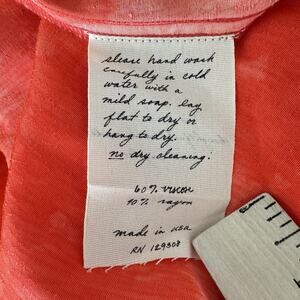 please hand wash
carefully in cold
water with a
mild soap. lay
flat to dry or
hang to dry.
no dry cleaning.
60%
40% rayon
made in USA
RN 129308